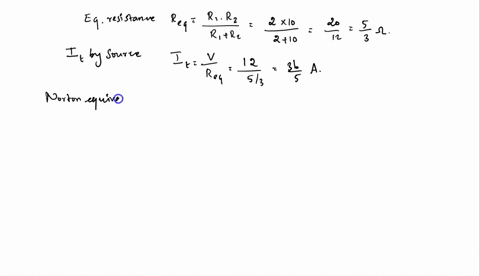 Eq. resistance Req = R1 . R2 / R1 + R2 = 2 × 10 / 2 + 10 = 20 / 12 = 5 / 3 Ω.
It by source It = V / Req = 12 / 5/3 = 36 / 5 A.
Norton equive